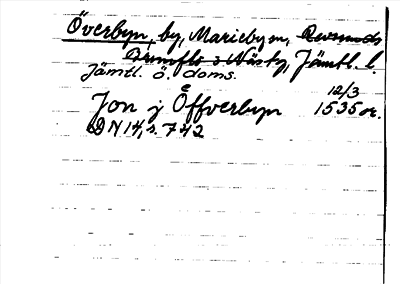 Överbyn, by, Marieby sn, Revsunds
Brunflo o Näskg, Jämtl. l.
Jämtl. ö. doms.
12/3
Jon j Öffverbyn 1535 or.
DN 14, s. 742